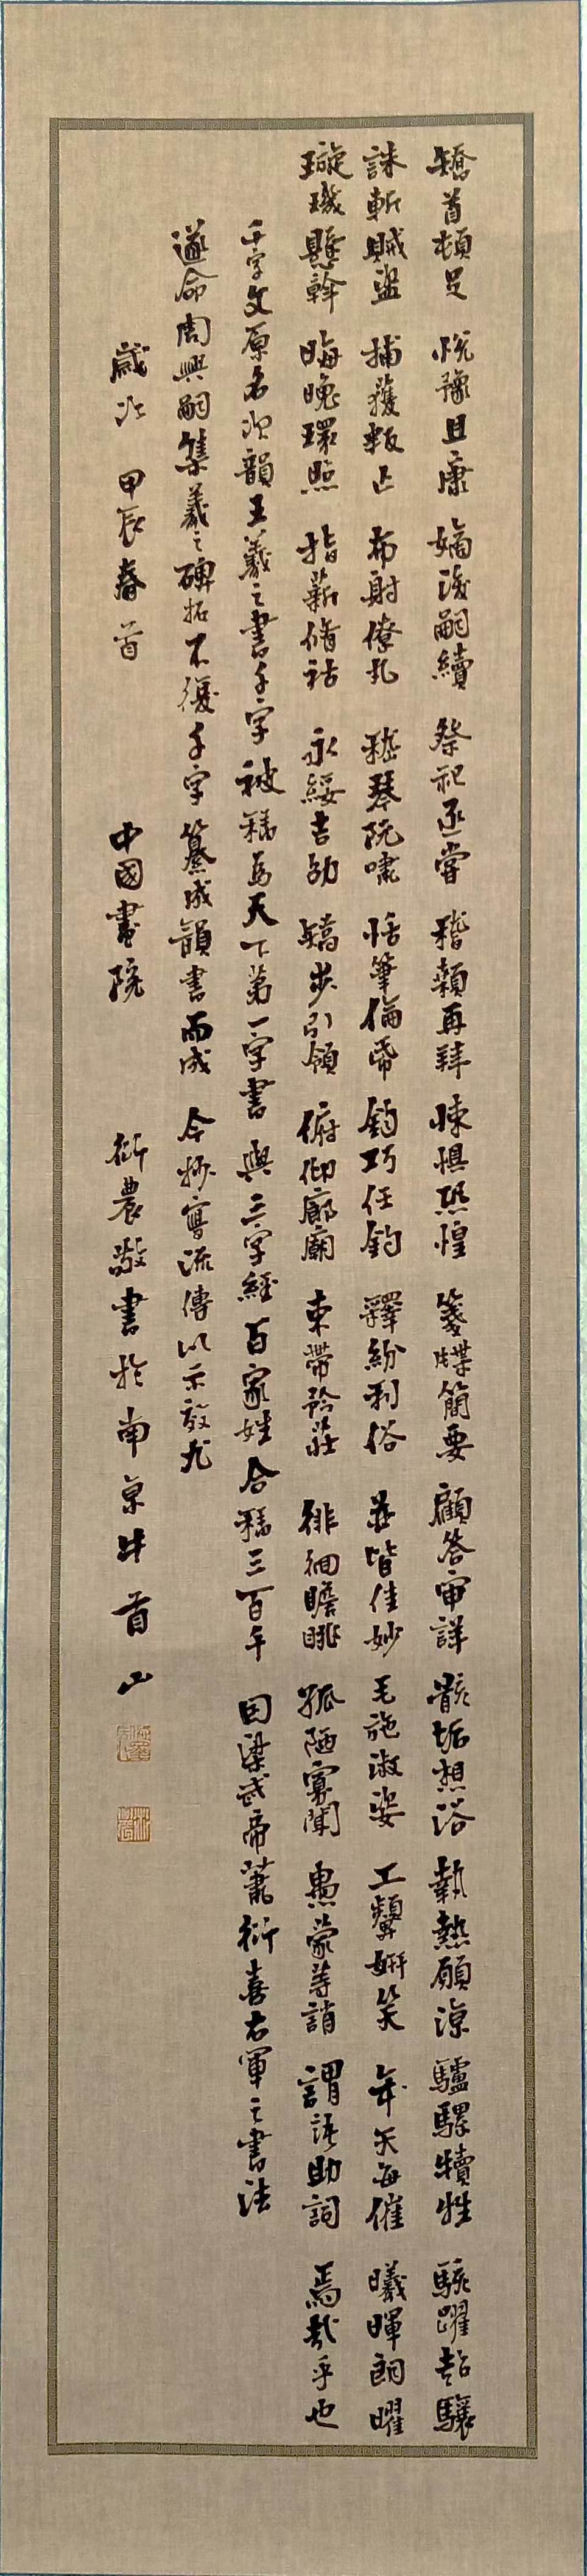 矯首頓足 悅豫且康 嫡後嗣續 祭祀烝嘗 稽顙再拜 悚懼恐惶 箋牒簡要 顧答審詳 骸垢想浴 執熱願涼 驢騾犢特 駭躍超驤
誅斬賊盜 捕獲叛亡 布射僚丸 嵇琴阮嘯 恬筆倫帋 鈞巧任釣 釋紛利俗 並皆佳妙 毛施淑姿 工顰妍笑 年矢每催 曦暉朗曜
璇璣懸斡 晦魄環照 指薪修祜 永綏吉劭 矯步引領 俯仰廊廟 束帶矜莊 徘徊瞻眺 孤陋寡聞 愚蒙等誚 謂語助詞 焉哉乎也
千字文原名次韻王羲之書千字 被稱為天下第一字書 與三字經百家姓合稱三百千 因梁武帝蕭衍喜右軍之書法
遂命周興嗣集羲之碑拓不復千字 纂成韻書而成 今抄寫流傳以示
歲次 甲辰春首 中國書院 衍農敬書於南京牛首山